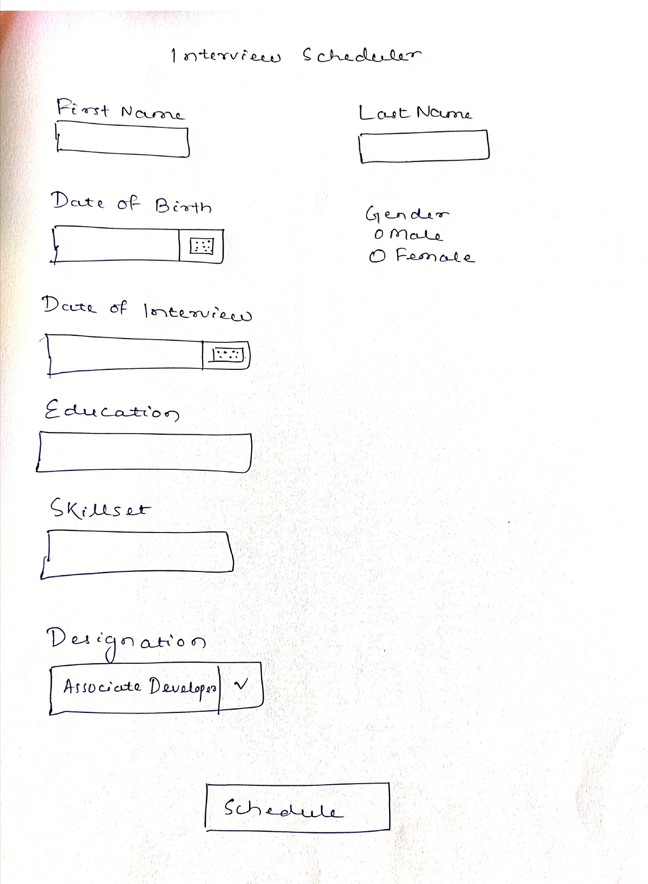 Interview Scheduler
First Name
Last Name
Date of Birth
Gender
Male
Female
Date of Interview
Education
Skillset
Designation
Associate Developer
Schedule